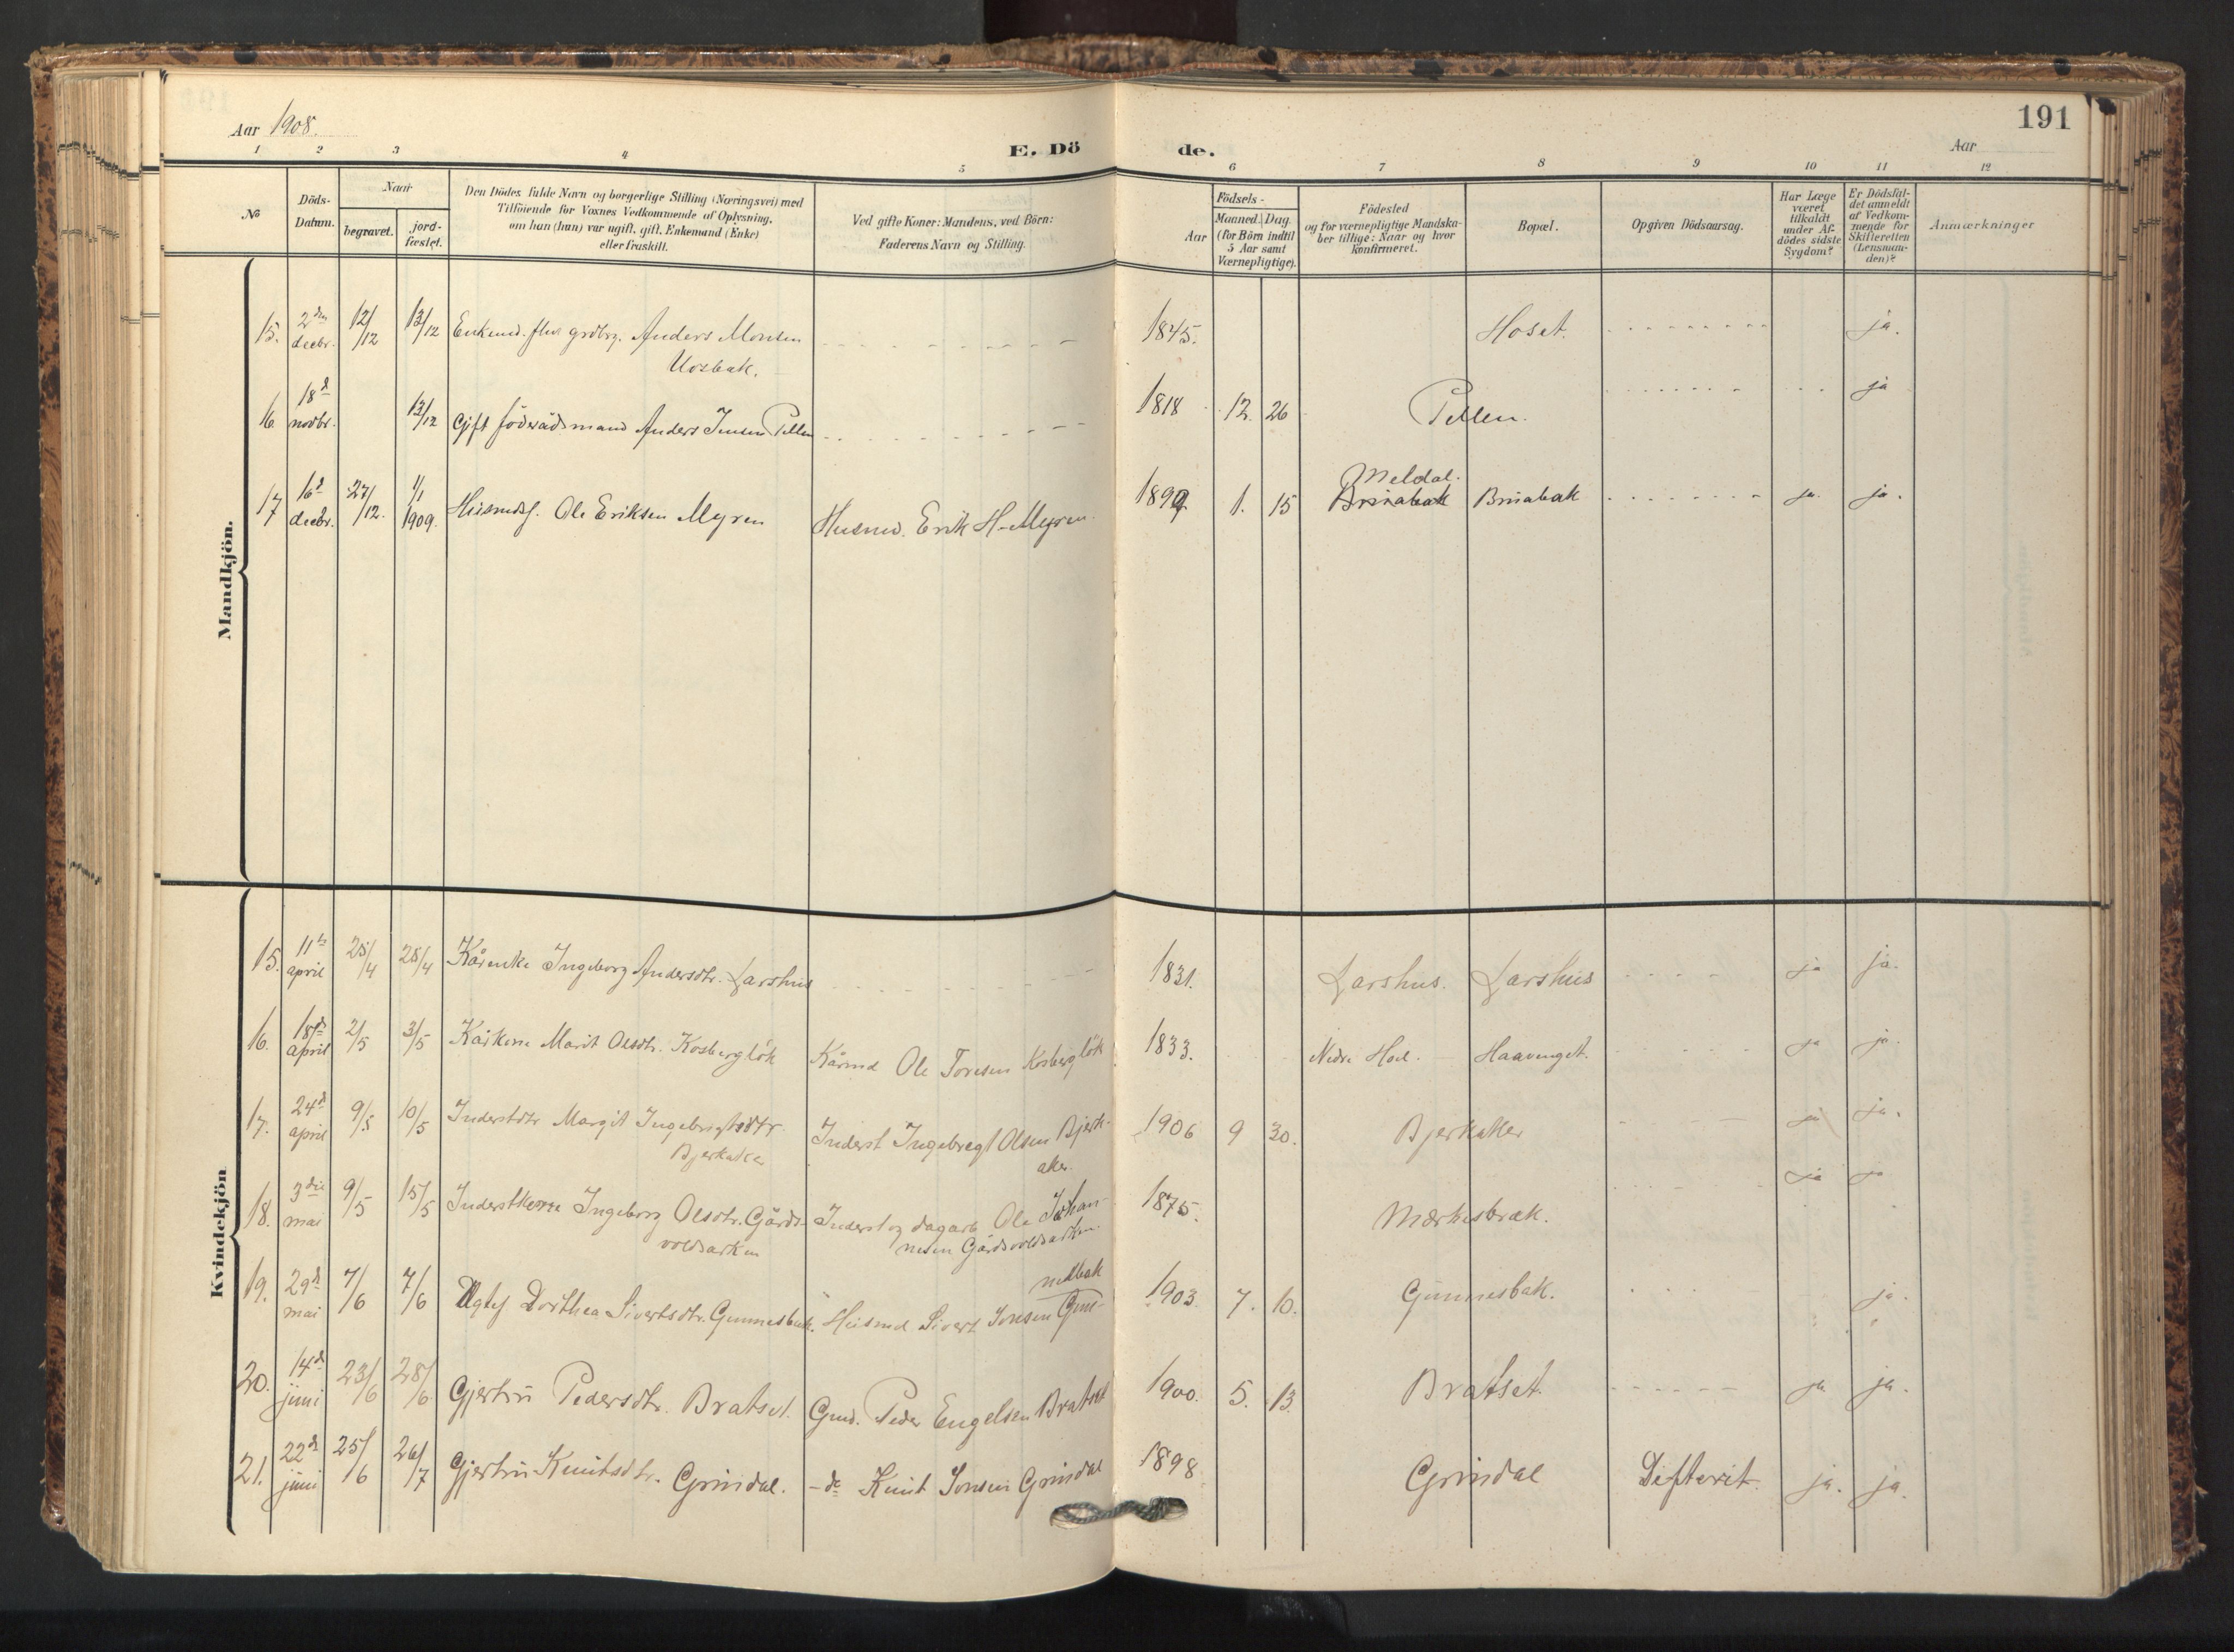 191
Aar 1908.
E. Döde.
Aar
1 2 3 4 5 6 7 8 9 10 11 12
No
Döds-Datum.
Naar
begravet.
jord-fæstet.
Den Dödes fulde Navn og borgerlige Stilling (Næringsvei) med
Tilföiende for Voxnes Vedkommende af Oplysning,
om han (hun) var ugift, gift, Enkemand (Enke)
eller fraskilt.
Ved gifte Koner: Mandens, ved Börn:
Faderens Navn og Stilling.
Födsels-
Aar
Maaned. Dag.
(for Börn indtil
5 Aar samt
Værnepligtige).
Födested
og for værnepligtige Mandska-
ber tillige: Naar og hvor
konfirmeret.
Bopæl.
Opgiven Dödsaarsag.
Har Læge
været
tilkaldt
under Af-
dödes sidste
Sygdom?
Er Dödsfal-
det anmeldt
af Vedkom-
mende for
Skifteretten
(Lensman-
den)?
Anmærkninger
Mandkjön.
15. 2den decbr. 12/12 13/12 Enkemd. grdbrg. Anders Monsen 1845. Hoset. ja.
16. 18d novbr. 13/12 Gift föderådsmand Anders Jensen Pellen 1818 12. 26 Pellen. ja
17 16d decbr. 27/12. 1/1 1909. Husmds. Ole Eriksen Myren Husmd. Erik H. Myren 1899 1. 15 Meldal. Bruabak ja. ja.
Kvindekjön
15. 11te april 25/4 28/4 Kårenke Ingeborg Andersdtr. Larshus 1831. Larshus. Larshus ja ja.
16. 18de april 2/5 3/5 Kårkone Marit Olsdtr. Kosberglök Kårmd Ole Toresen Kosberglök 1833. Nedre Hoel. Haavenget. ja ja.
17. 24d april 9/5 10/5 Inderstdtr Margit Ingebrigtsdtr.
Bjerkaker Inderst Ingebregt Olsen Bjerk-
aker. 1906 9 30. Bjerkaker ja ja.
18. 3die mai 9/5 15/5 Inderstkone Ingeborg Olsdtr. Gårds-
voldsarken Inderst og dagarb. Ole Johan-
nesen Gårdsvoldsarken. 1875. Mærkesbræk. ja ja
19. 29d mai 7/6 7/6 Dorthea Sivertsdtr. Gunnesbak. Husmd Sivert Jonsen Gun-
nesbak 1903. 7. 10. Gunnesbak. ja.
20. 14d juni 23/6 28/6 Gjertru Pedersdtr. Bratset. Gmd. Peder Engelsen Bratset 1900. 5. 13. Bratset. ja ja.
21. 22d juni 25/6 26/7 Gjertru Knutsdtr. Grindal. - do Knut Jonsen Grindal 1898 Grindal Difterit. ja. ja.